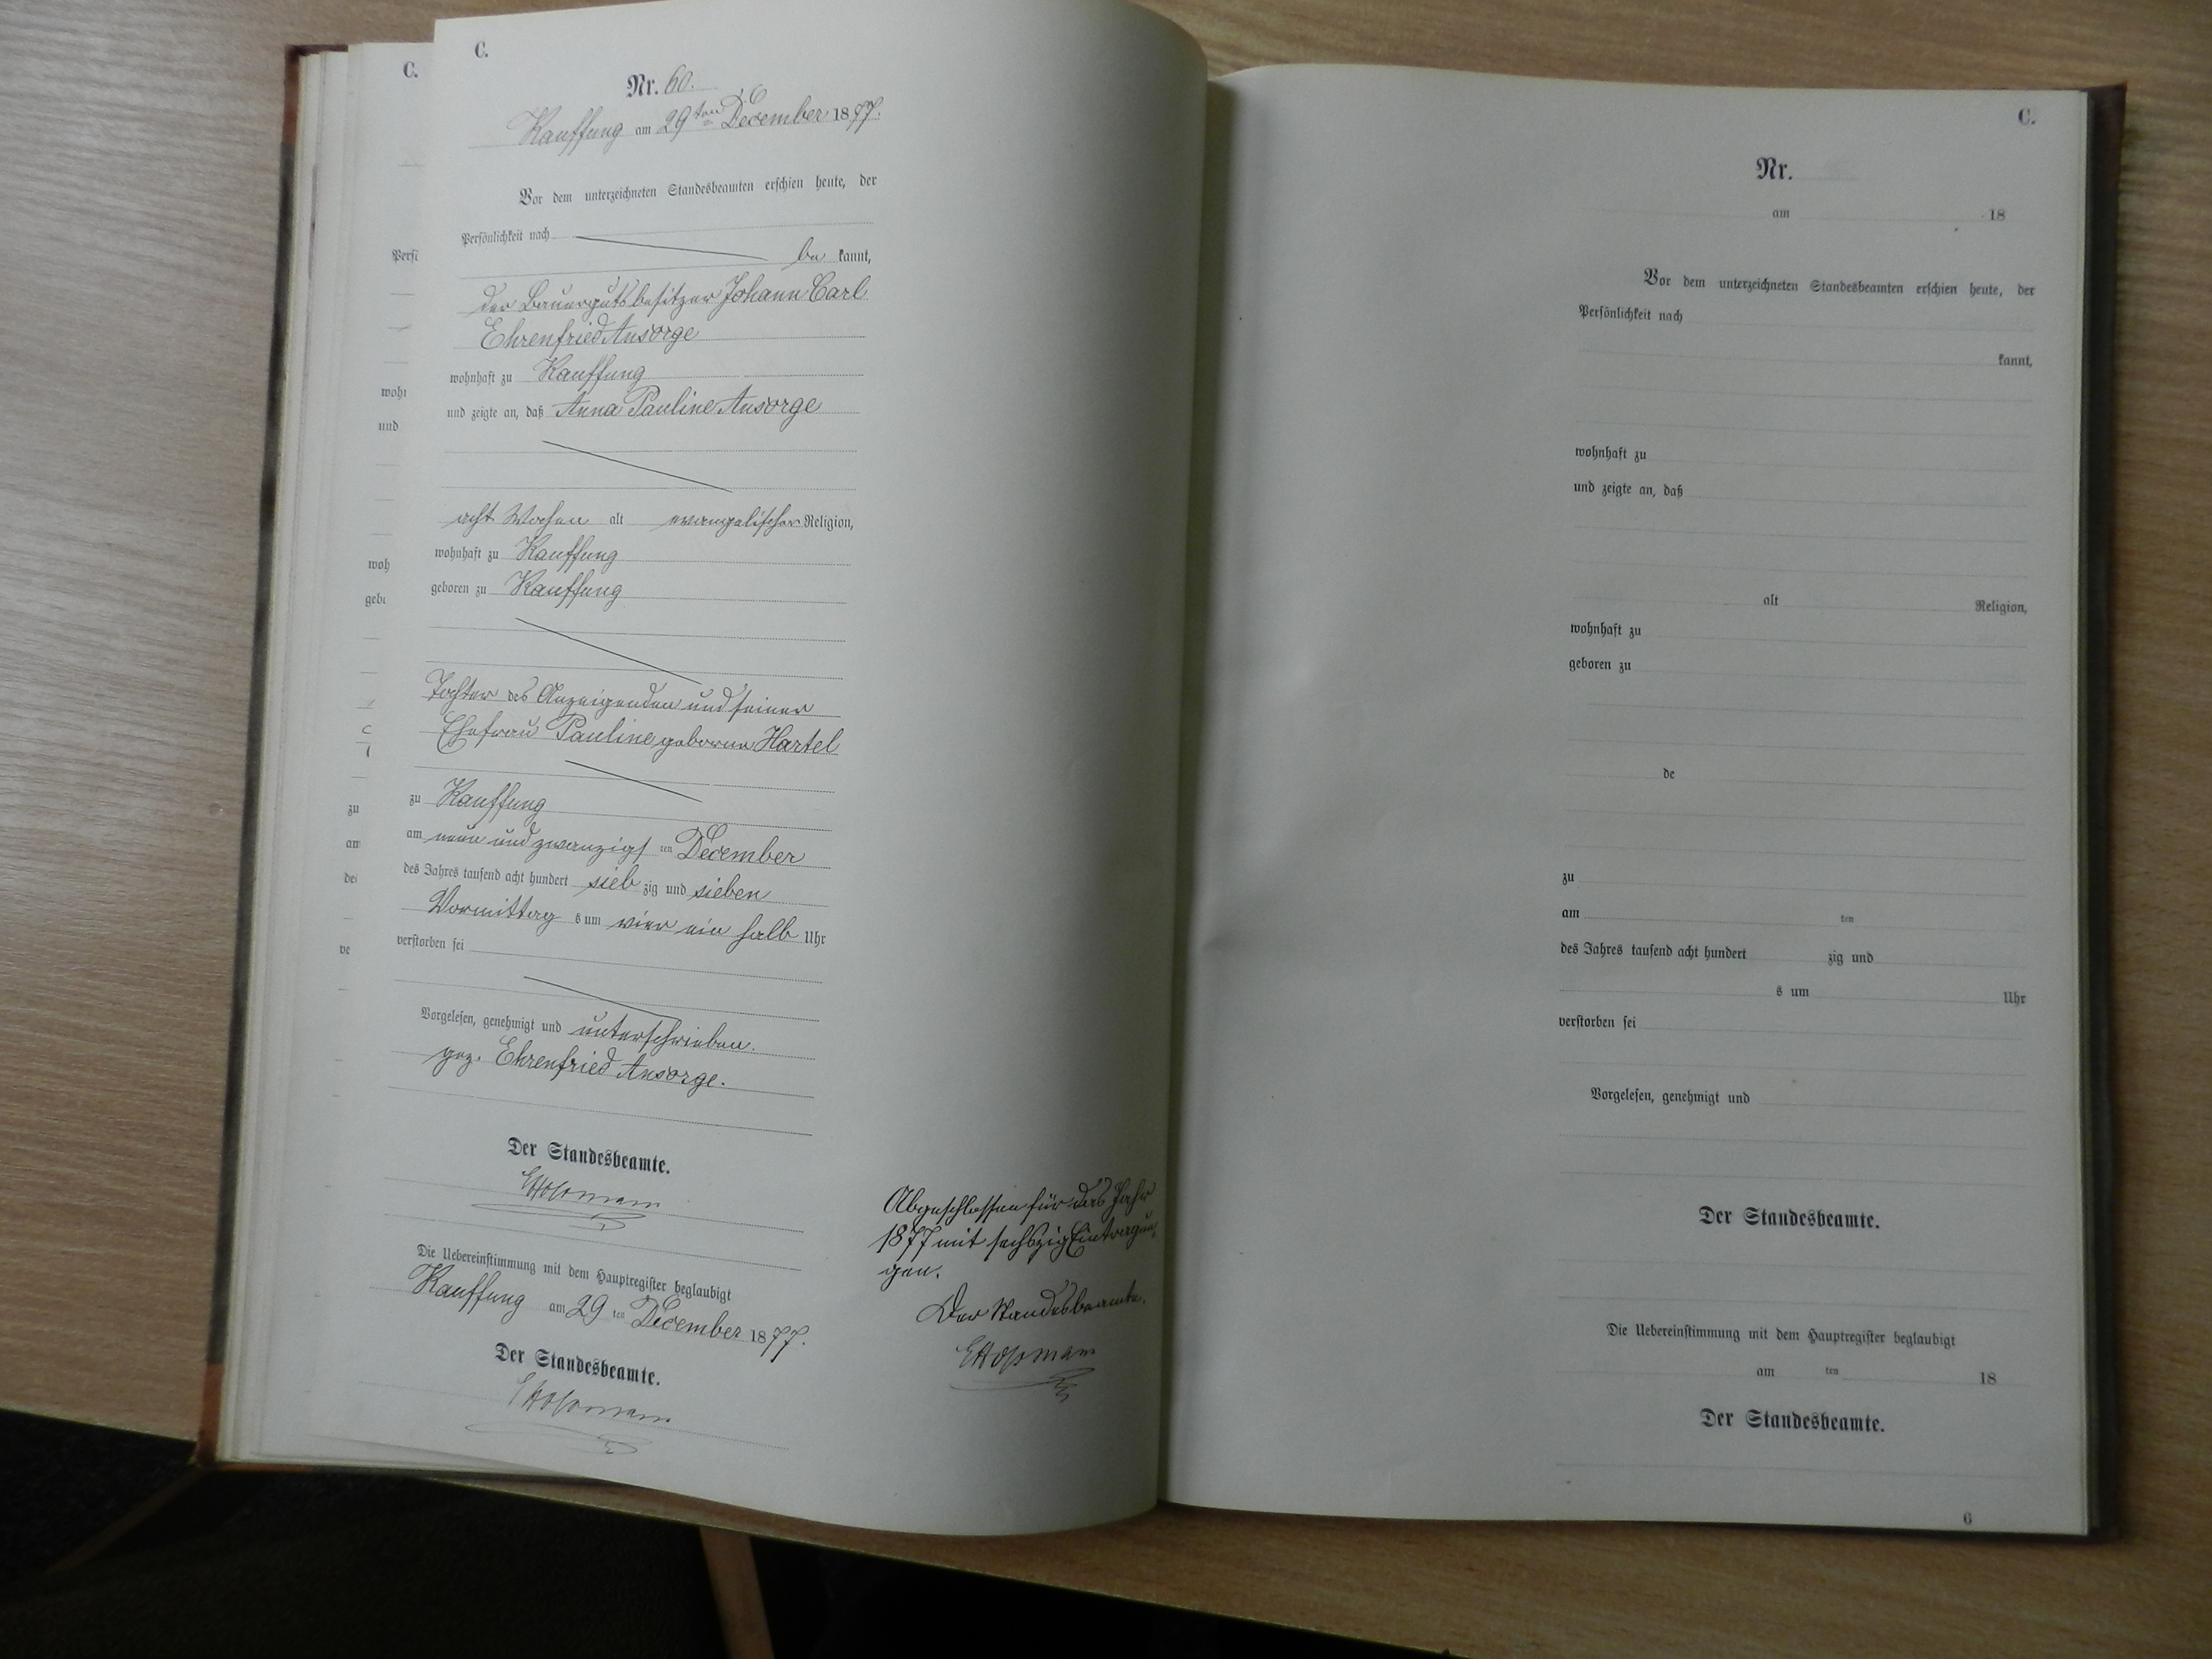 C.
Nr. 60.
Kauffung am 29ten December 1877.
Vor dem unterzeichneten Standesbeamten erschien heute, der
Persönlichkeit nach
be kannt,
der Bauergutsbesitzer Johann Carl
Ehrenfried Ansorge
wohnhaft zu Kauffung
und zeigte an, daß Anna Pauline Ansorge
acht Wochen alt evangelischer Religion,
wohnhaft zu Kauffung
geboren zu Kauffung
Tochter des Anzeigenden und seiner
Ehefrau Pauline geborne Hartel
zu Kauffung
am neun und zwanzigs ten December
des Jahres tausend acht hundert sieb zig und sieben
Vormittag s um vier ein halb Uhr
verstorben sei
Vorgelesen, genehmigt und unterschrieben.
gez. Ehrenfried Ansorge.
Der Standesbeamte.
Die Uebereinstimmung mit dem Hauptregister beglaubigt
Kauffung am 29 ten December 1877.
Der Standesbeamte.
Abgeschlossen für das Jahr
1877 mit sechszig Eintragun
gen.
Der Standesbeamte.
C.
Persö
wohn
und
woh
gebo
zu
am
des
ve
C.
Nr.
am 18
Vor dem unterzeichneten Standesbeamten erschien heute, der
Persönlichkeit nach
kannt,
wohnhaft zu
und zeigte an, daß
alt Religion,
wohnhaft zu
geboren zu
de
zu
am ten
des Jahres tausend acht hundert zig und
s um Uhr
verstorben sei
Vorgelesen, genehmigt und
Der Standesbeamte.
Die Uebereinstimmung mit dem Hauptregister beglaubigt
am ten 18
Der Standesbeamte.
6